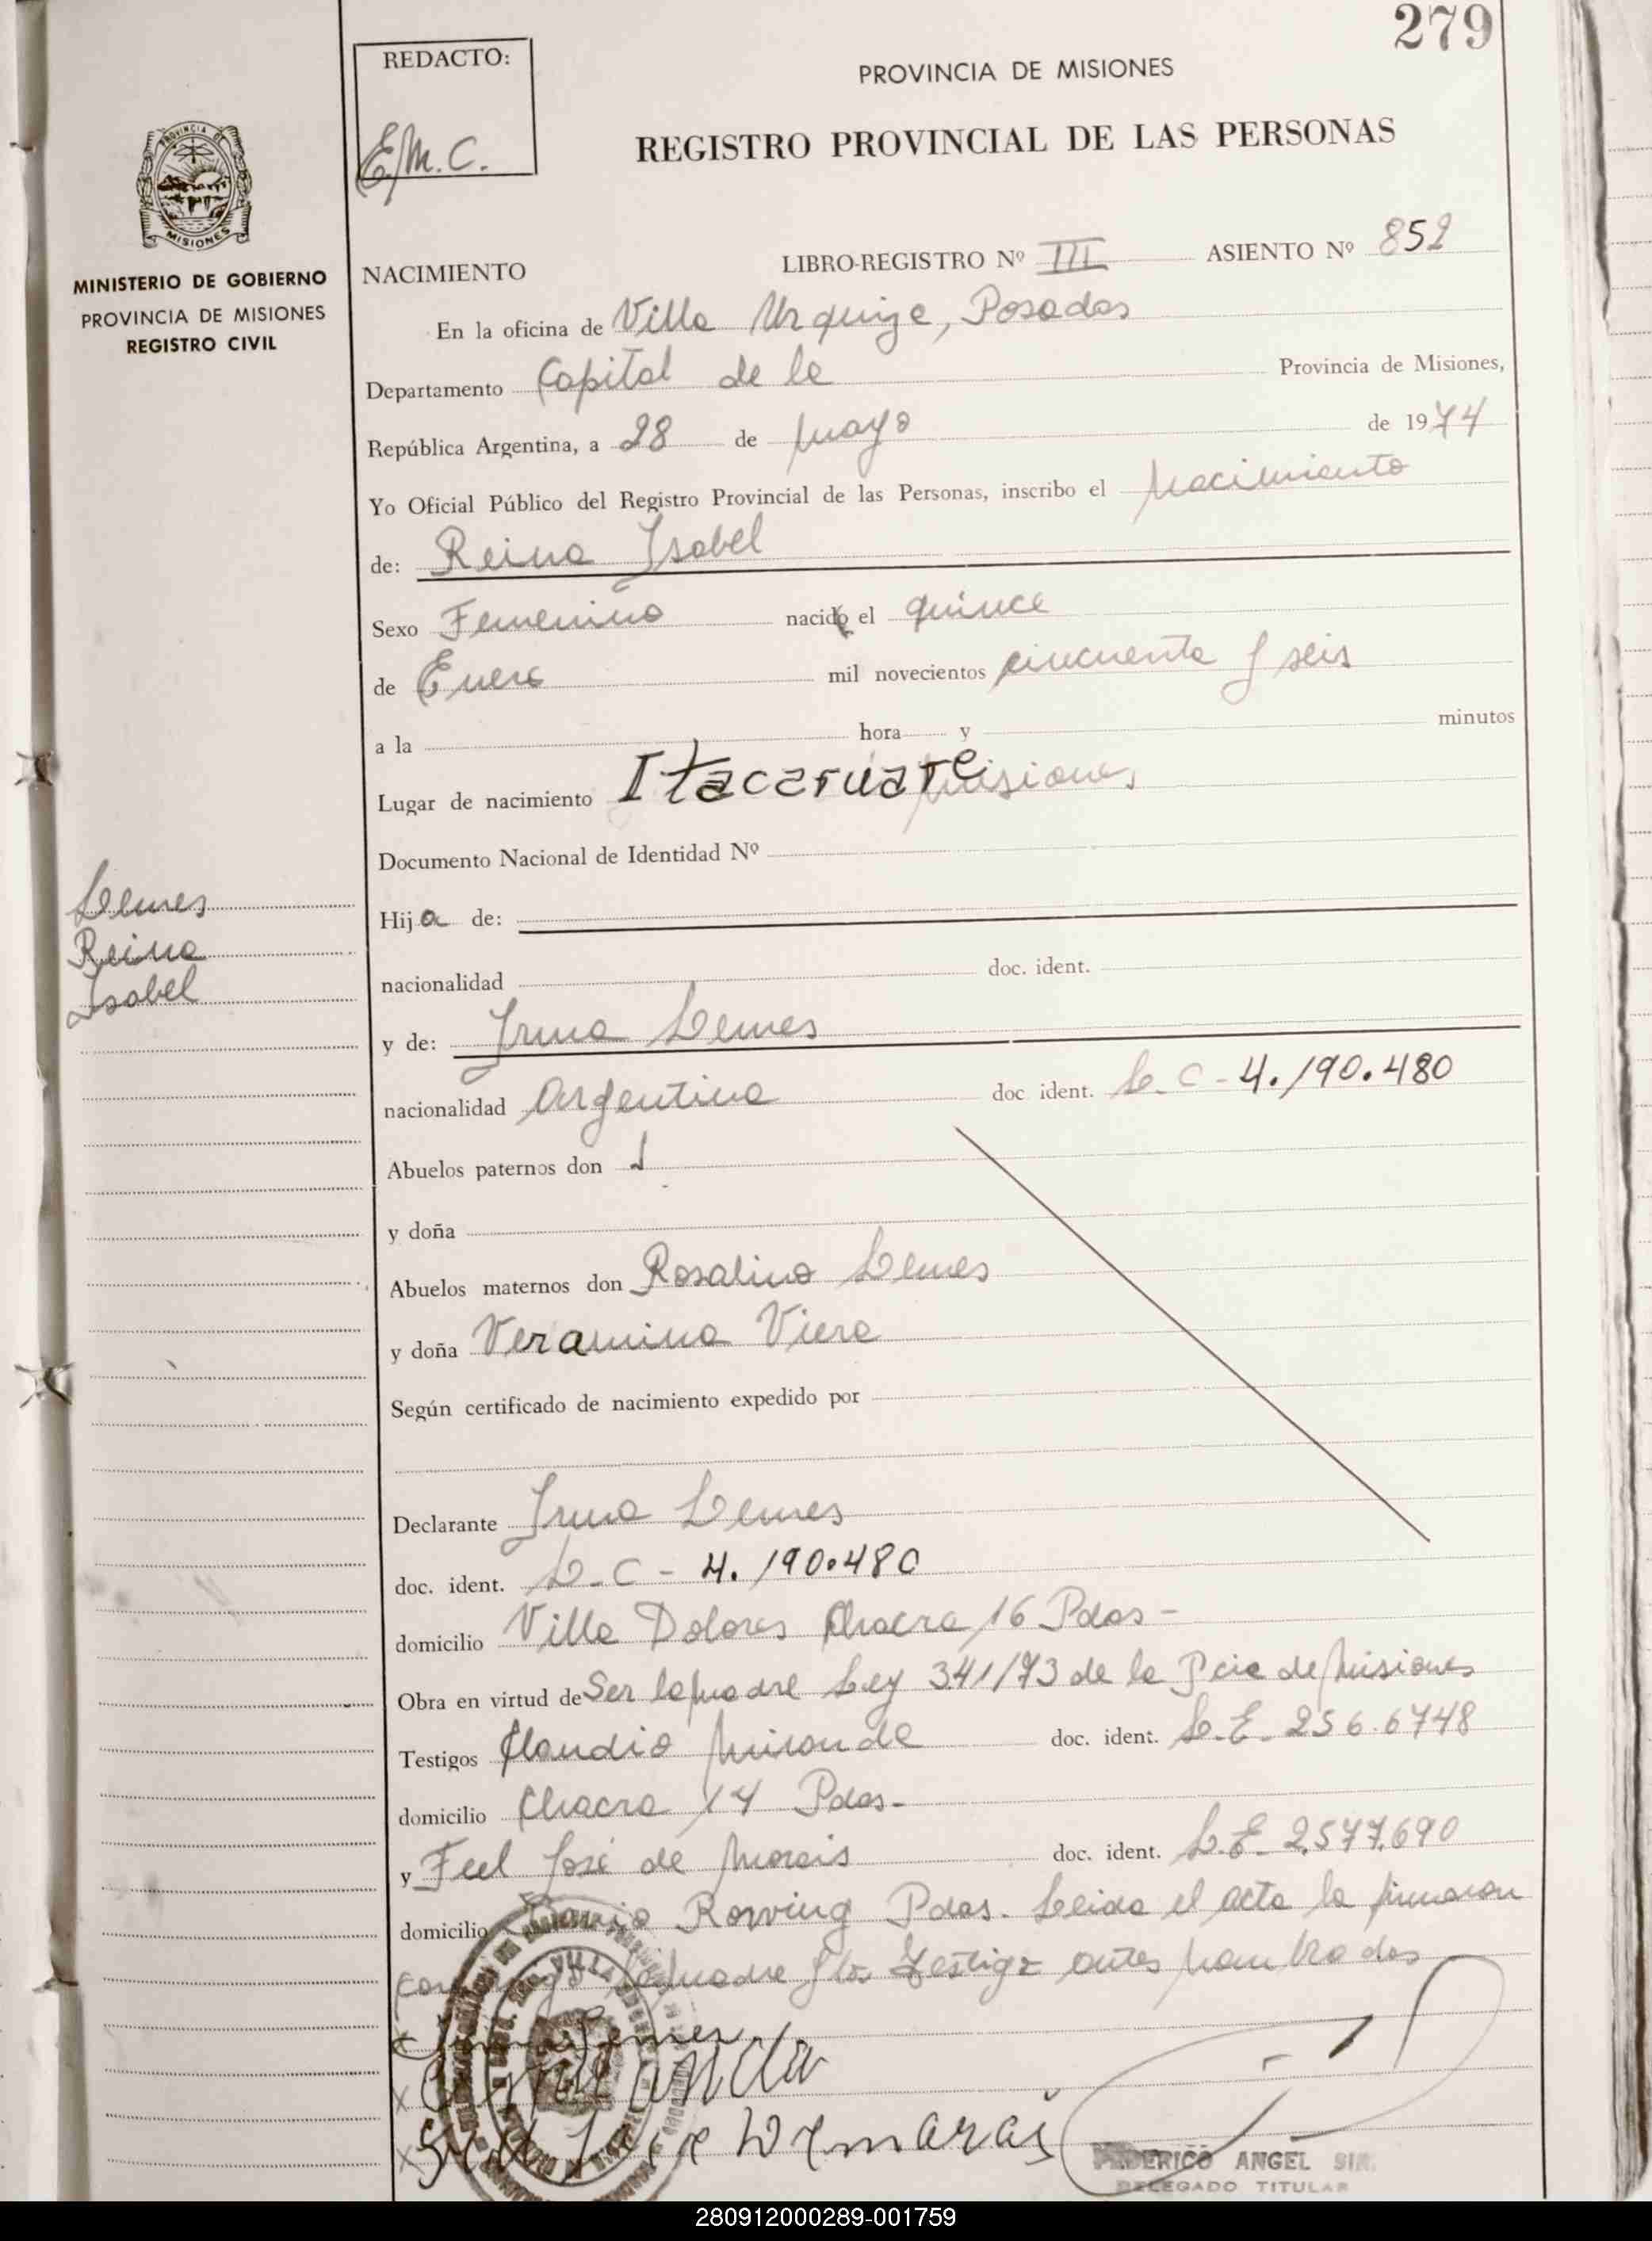 279
REDACTO:
E/M.C.
PROVINCIA DE MISIONES
REGISTRO PROVINCIAL DE LAS PERSONAS
PROVINCIA DE
MISIONES
MINISTERIO DE GOBIERNO
PROVINCIA DE MISIONES
REGISTRO CIVIL
NACIMIENTO LIBRO-REGISTRO Nº III ASIENTO Nº 852
En la oficina de Villa Urquiza, Posadas
Departamento Capital de la Provincia de Misiones,
República Argentina, a 28 de Mayo de 1974
Yo Oficial Público del Registro Provincial de las Personas, inscribo el Nacimiento
de: Reina Isabel
Sexo Femenino nacida el quince
de Enero mil novecientos cincuenta y seis
a la hora y minutos
Lugar de nacimiento Itacaruare Misiones
Documento Nacional de Identidad Nº
Lemes
Reina
Isabel
Hija de:
nacionalidad doc. ident.
y de: Irma Lemes
nacionalidad Argentina doc ident. L.C - 4.190.480
Abuelos paternos don
y doña
Abuelos maternos don Rosalino Lemes
y doña Veramina Viera
Según certificado de nacimiento expedido por
Declarante Irma Lemes
doc. ident. L.C - 4.190.480
domicilio Villa Dolores Chacra 16 Pdas -
Obra en virtud de Ser la madre Ley 341/73 de la Pcia de Misiones
Testigos Claudio Miranda doc. ident. L.E. 256.6748
domicilio Chacra 14 Pdas.-
y Feel José de Morais doc. ident. L.E. 2.577.690
domicilio Barrio Rowing Pdas. Leida el acta la firmaron
la madre y los testigo antes nombrados
x Irma Lemes
x Miranda
x José de morais
FEDERICO ANGEL
DELEGADO TITULAR
280912000289-001759